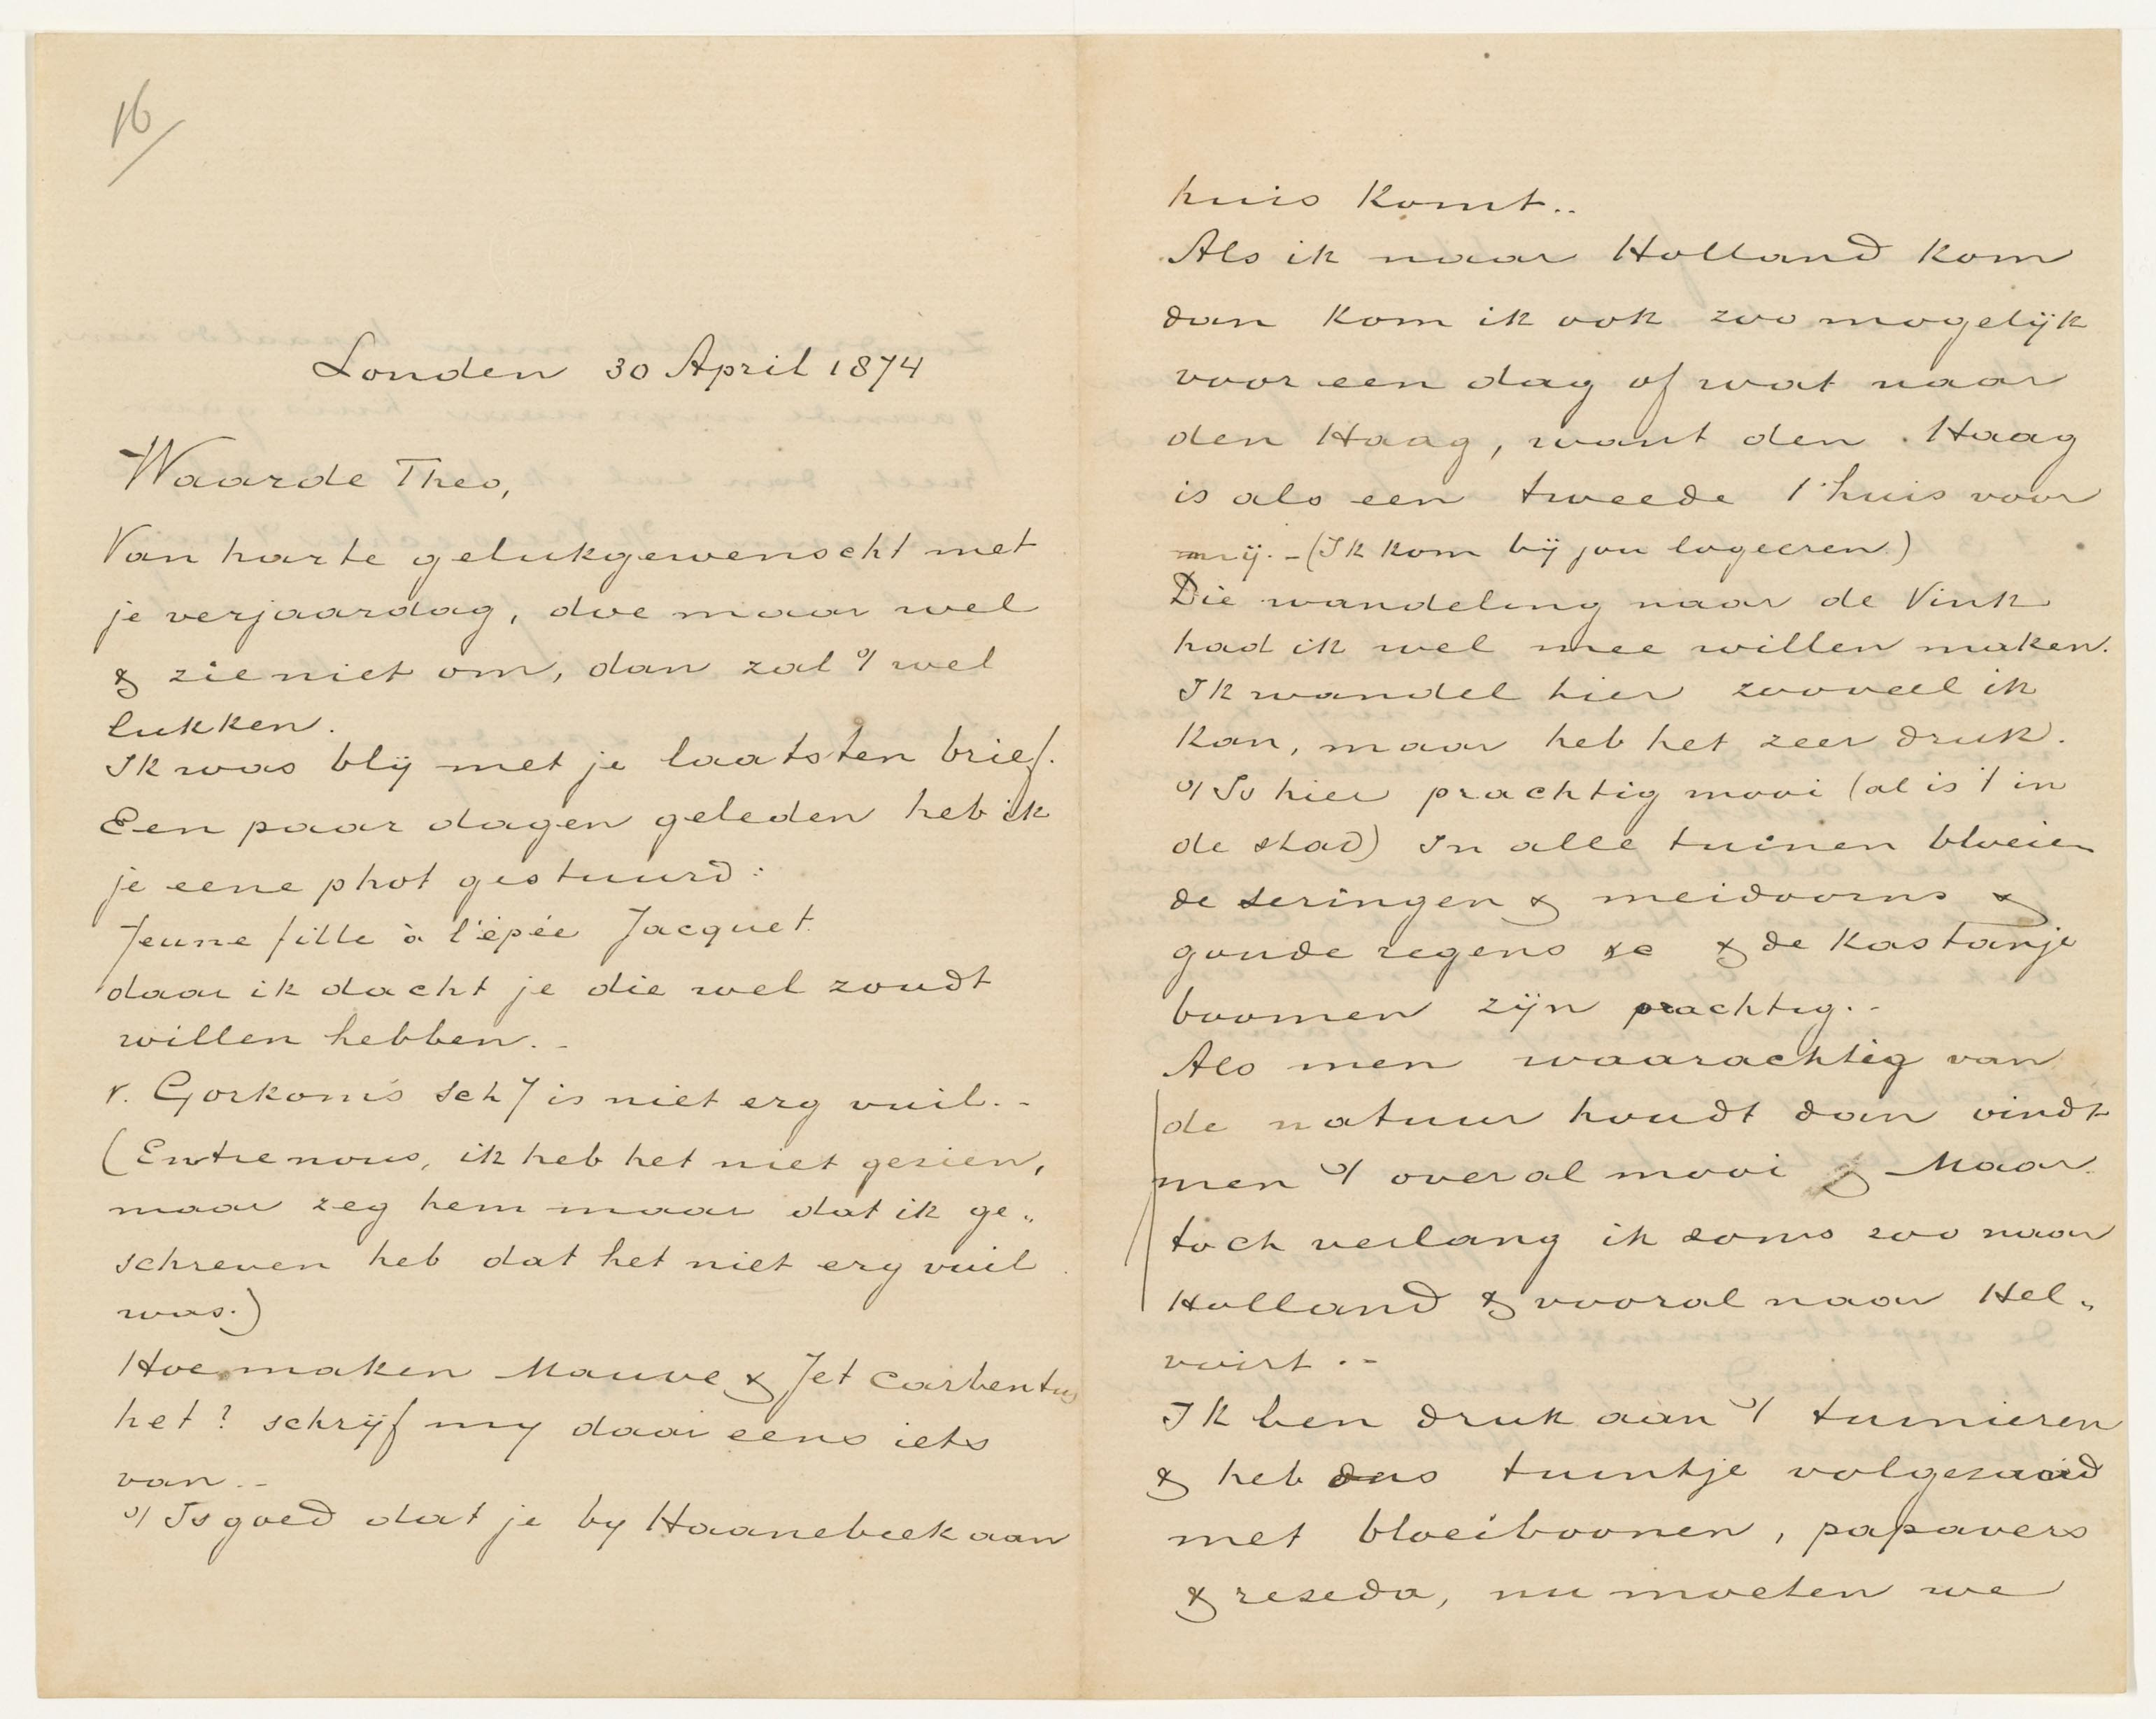 16
Londen 30 April 1874
Waarde Theo,
Van harte gelukgewenscht met
je verjaardag, doe maar wel
& zie niet om, dan zal 't wel
lukken.
Ik was blij met je laatsten brief.
Een paar dagen geleden heb ik
je eene phot gestuurd:
Jeune fille à l'épée Jacquet.
daar ik dacht je die wel zoudt
willen hebben.-
v. Gorkom's schij is niet erg vuil.-
(Entre nous, ik heb het niet gezien,
maar zeg hem maar dat ik ge„
schreven heb dat het niet erg vuil
was.)
Hoe maken Mauve & Jet Carbentus
het? schrijf my daar eens iets
van.-
't Is goed dat je by Haanebeek aan
huis komt..
Als ik naar Holland kom
dan kom ik ook zoo mogelijk
voor een dag of wat naar
den Haag, want den Haag
is als een tweede t'huis voor
mij.-(Ik kom bij jou logeeren)
Die wandeling naar de Vink
had ik wel mee willen maken.
Ik wandel hier zooveel ik
kan, maar heb het zeer druk.
't Is hier prachtig mooi (al is 't in
de stad) In alle tuinen bloeien
de seringen & meidoorns &
goude regens & de kastanje
boomen zijn prachtig.-
Als men waarachtig van
de natuur houdt dan vindt
men 't overal mooi Maar
toch verlang ik soms zoo naar
Holland & vooral naar Hel„
voirt.-
Ik ben druk aan 't tuinieren
& heb ons tuintje volgezaaid
met bloeiboonen, papavers
& reseda, nu moeten we